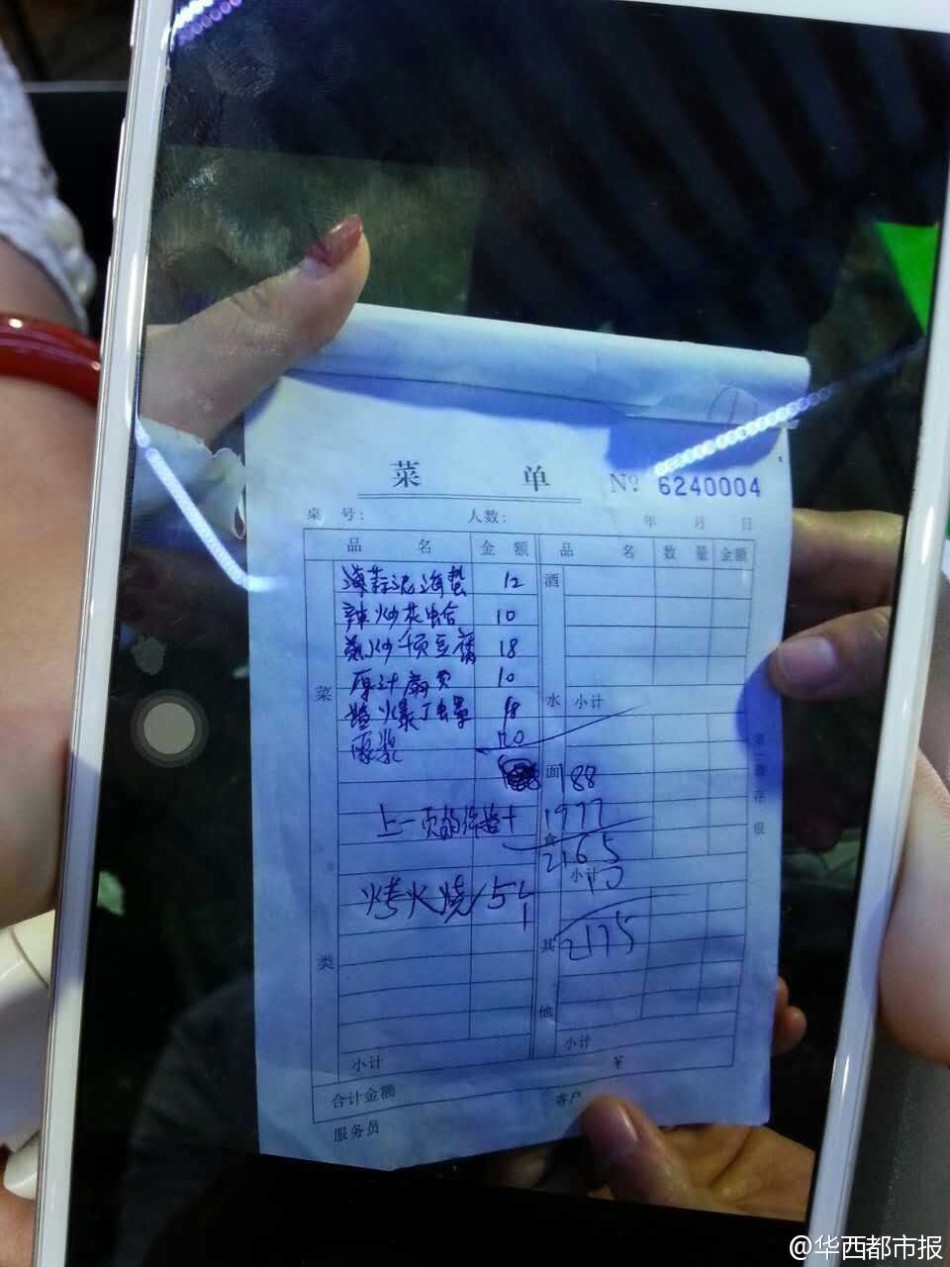 菜 单 № 6240004
桌 号： 人数： 年 月 日
品 名 金 额 品 名 数 量 金额
海蒜泥海蜇 12 酒
辣炒花蛤 10
炒千页豆腐 18
原汁扇贝 10
菜
爆丁螺 18 水 小计
豆浆 120
面 188
上一页的 十 1977
食
2165
小计 10
烤火烧 15个
其 2175
类
他
小计 小计
合计金额 ￥
服务员 客户
第二联存根
@华西都市报